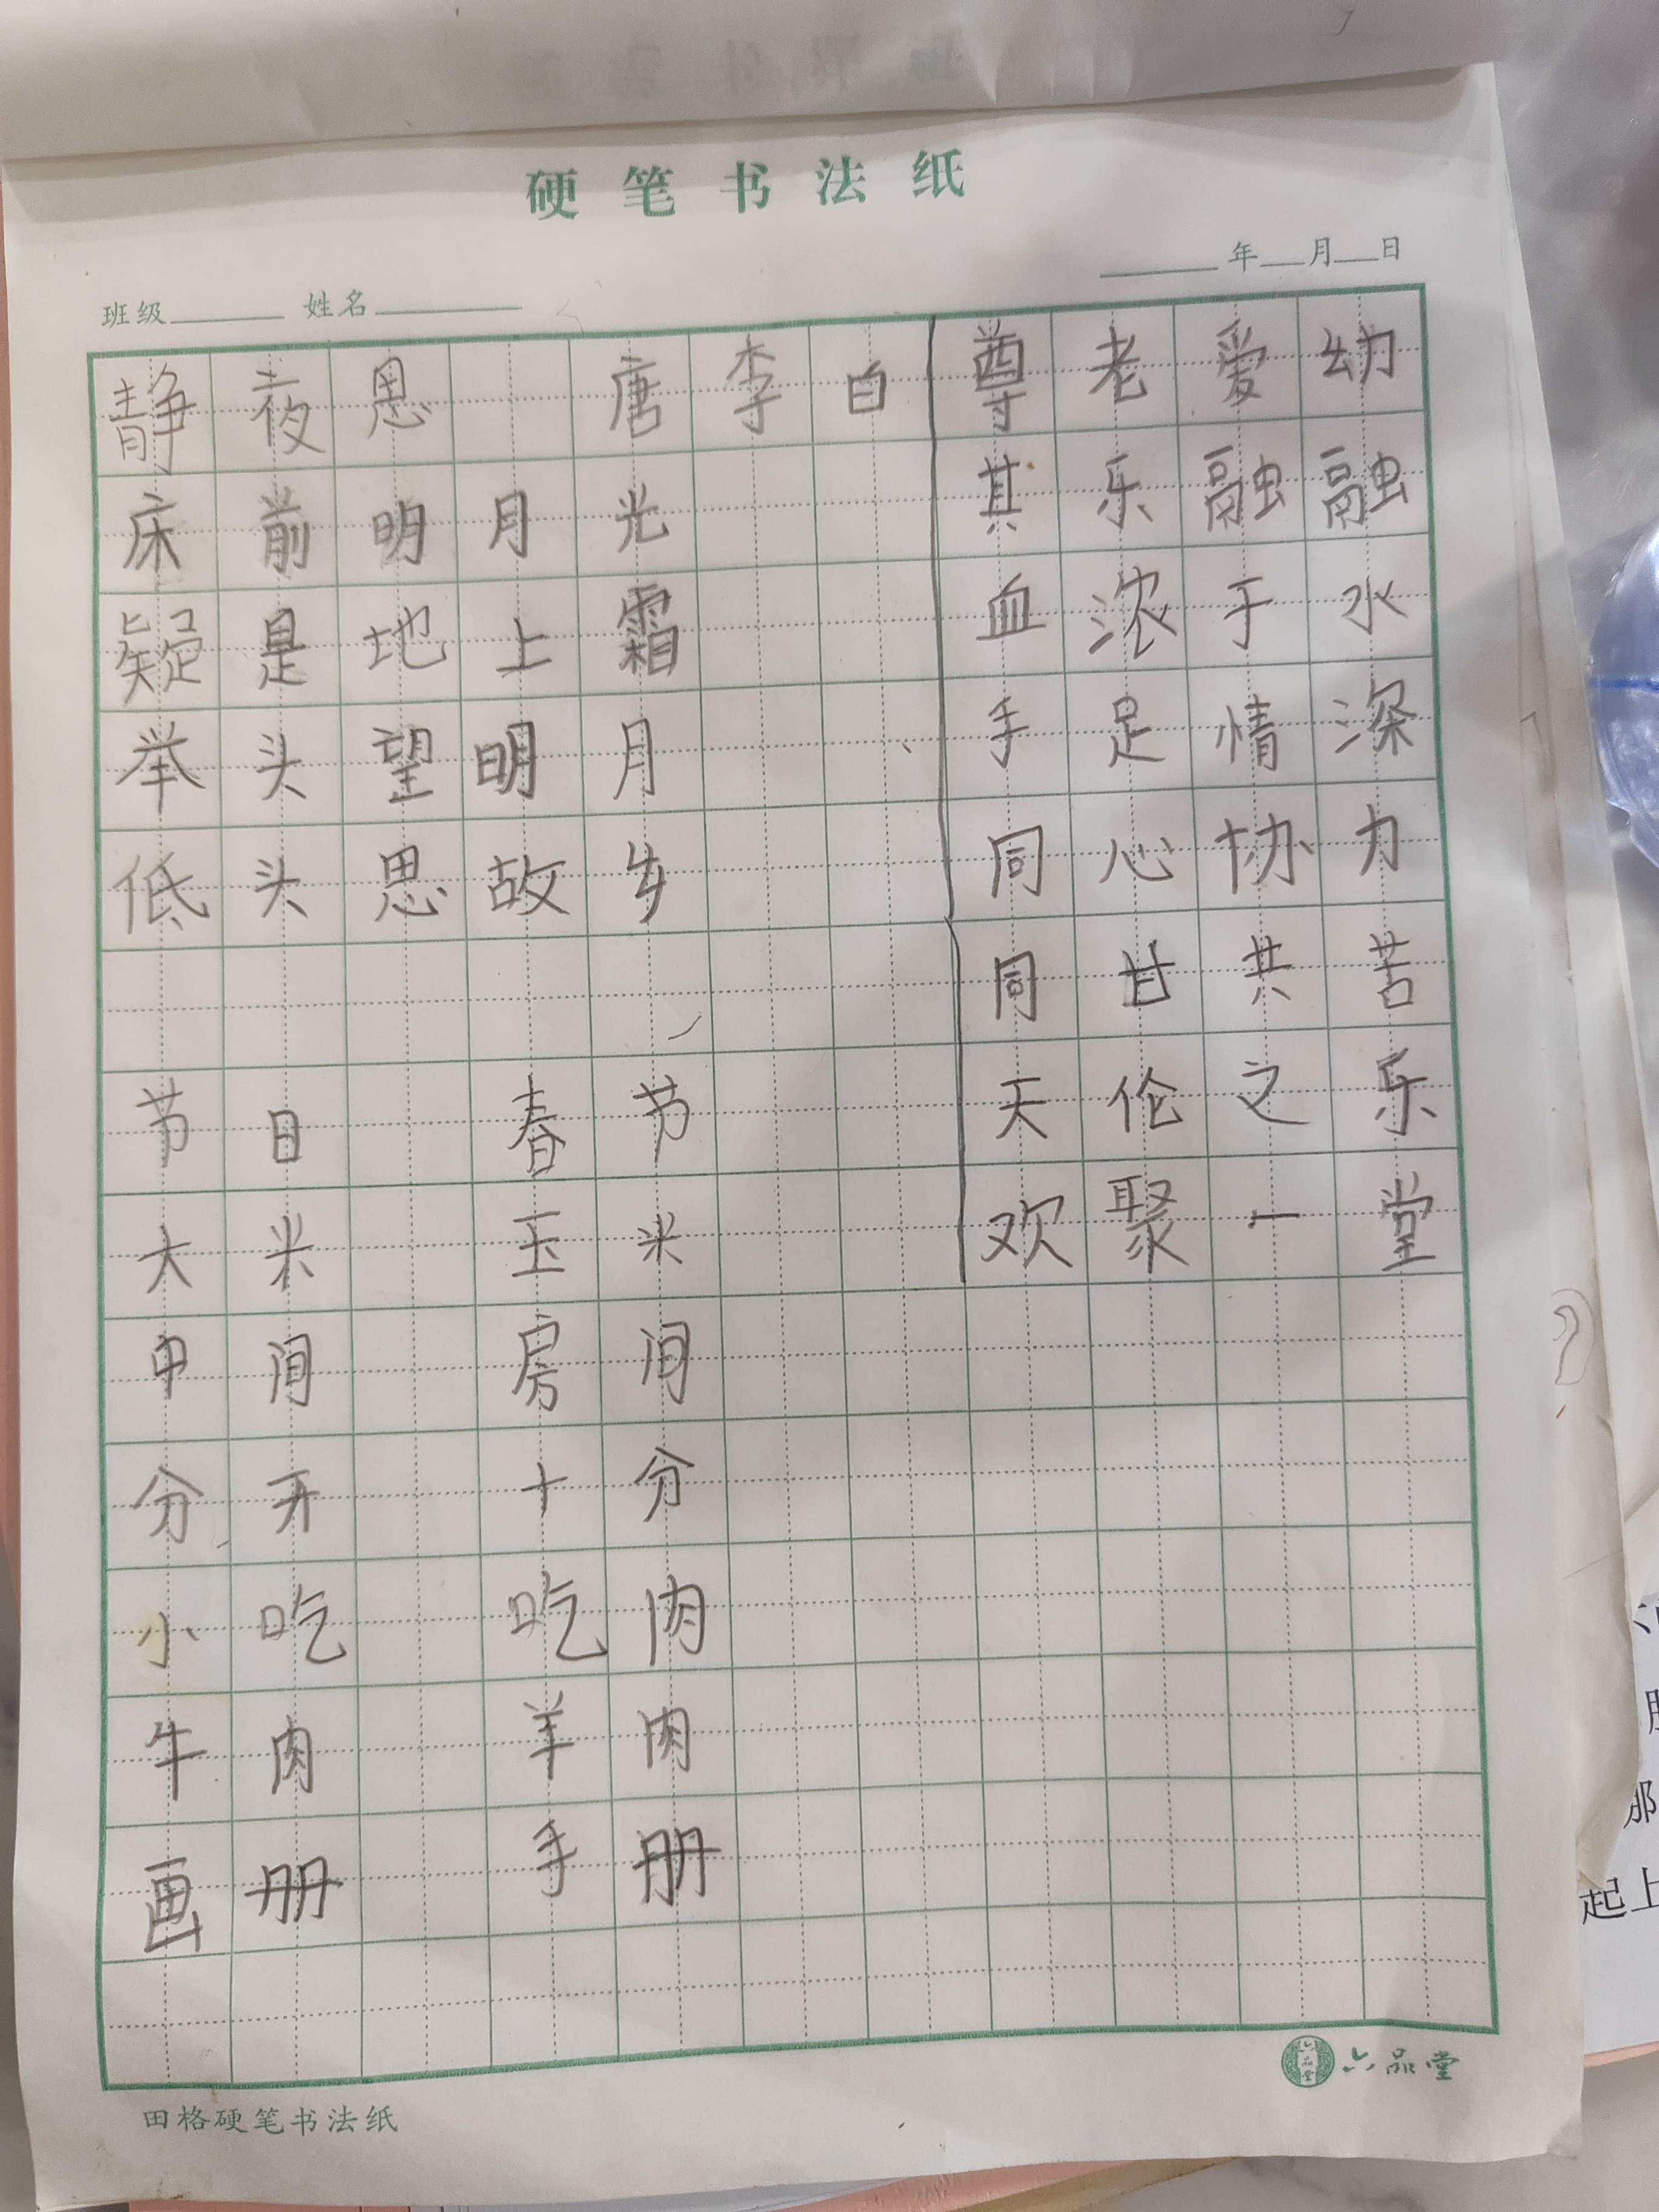 硬笔书法纸
年 月 日
班级 姓名
静夜思 唐李白
床前明月光
疑是地上霜
举头望明月
低头思故乡
节日 春节
大米 玉米
中间 房间
分开 十分
小吃 吃肉
牛肉 羊肉
画册 手册
尊老爱幼
其乐融融
血浓于水
手足情深
同心协力
同甘共苦
天伦之乐
欢聚一堂
六品堂
田格硬笔书法纸
那
起上